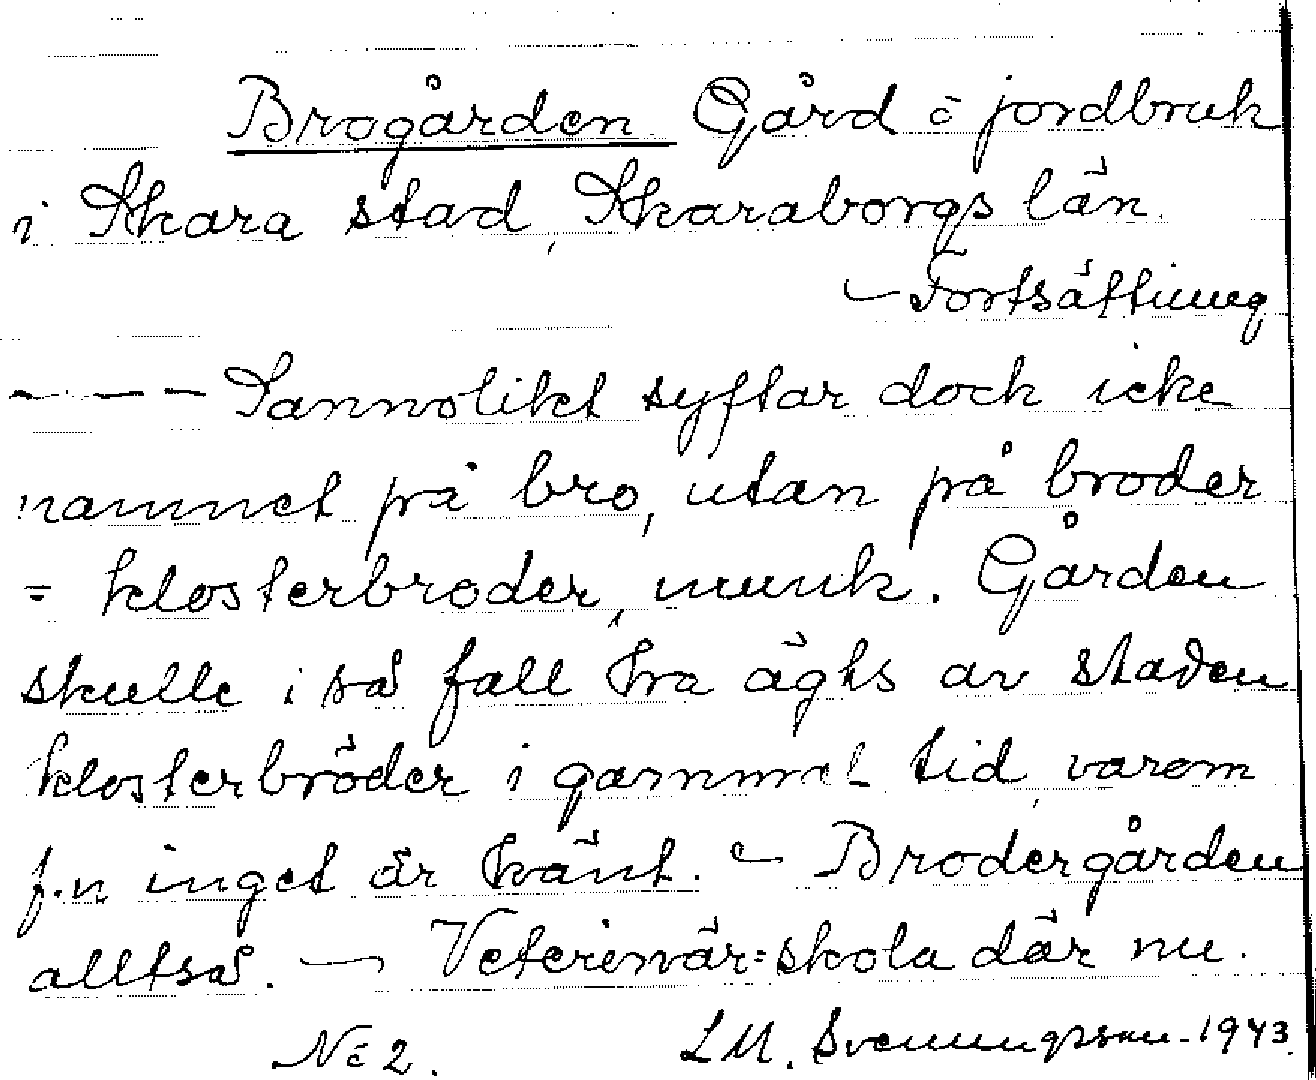 Brogården Gård o jordbruk
i Skara stad, Skaraborgs län.
– Fortsättning
– – – Sannolikt syftar dock icke
namnet på bro, utan på broder
= klosterbroder, munk. Gården
skulle i så fall ha ägts av staden
klosterbröder i gammal tid, varom
f.n inget är känt. – Brodergården
alltså. – Veterinär=skola där nu.
No 2. L M. Svenungsson - 1943.